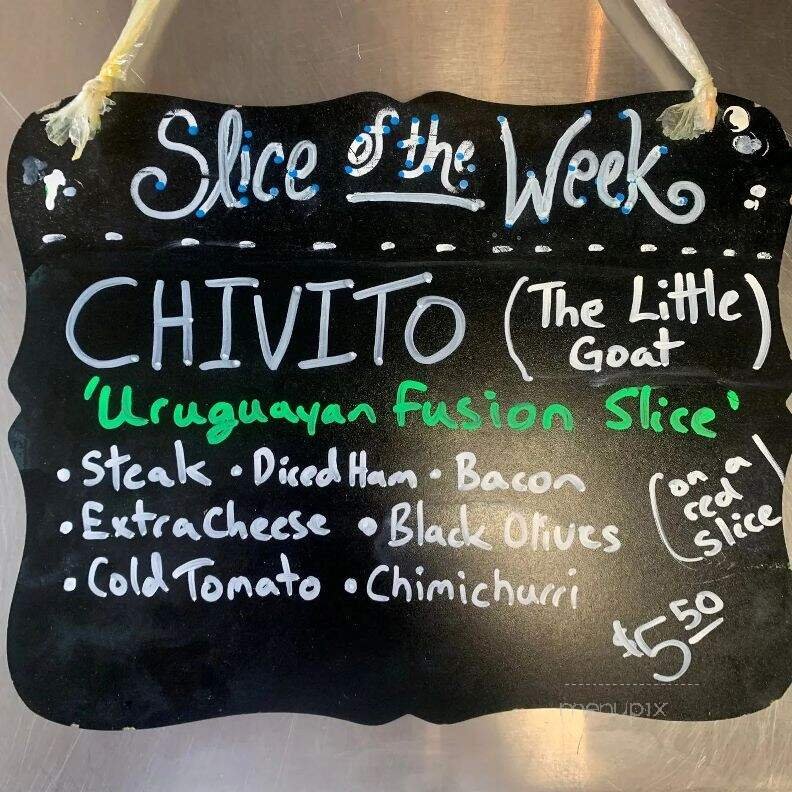 Slice of the Week
CHIVITO (The Little Goat)
'Uruguayan Fusion Slice'
• Steak • Diced Ham • Bacon
• Extra Cheese • Black Olives
(on a red slice)
• Cold Tomato • Chimichurri
$5.50
menupix